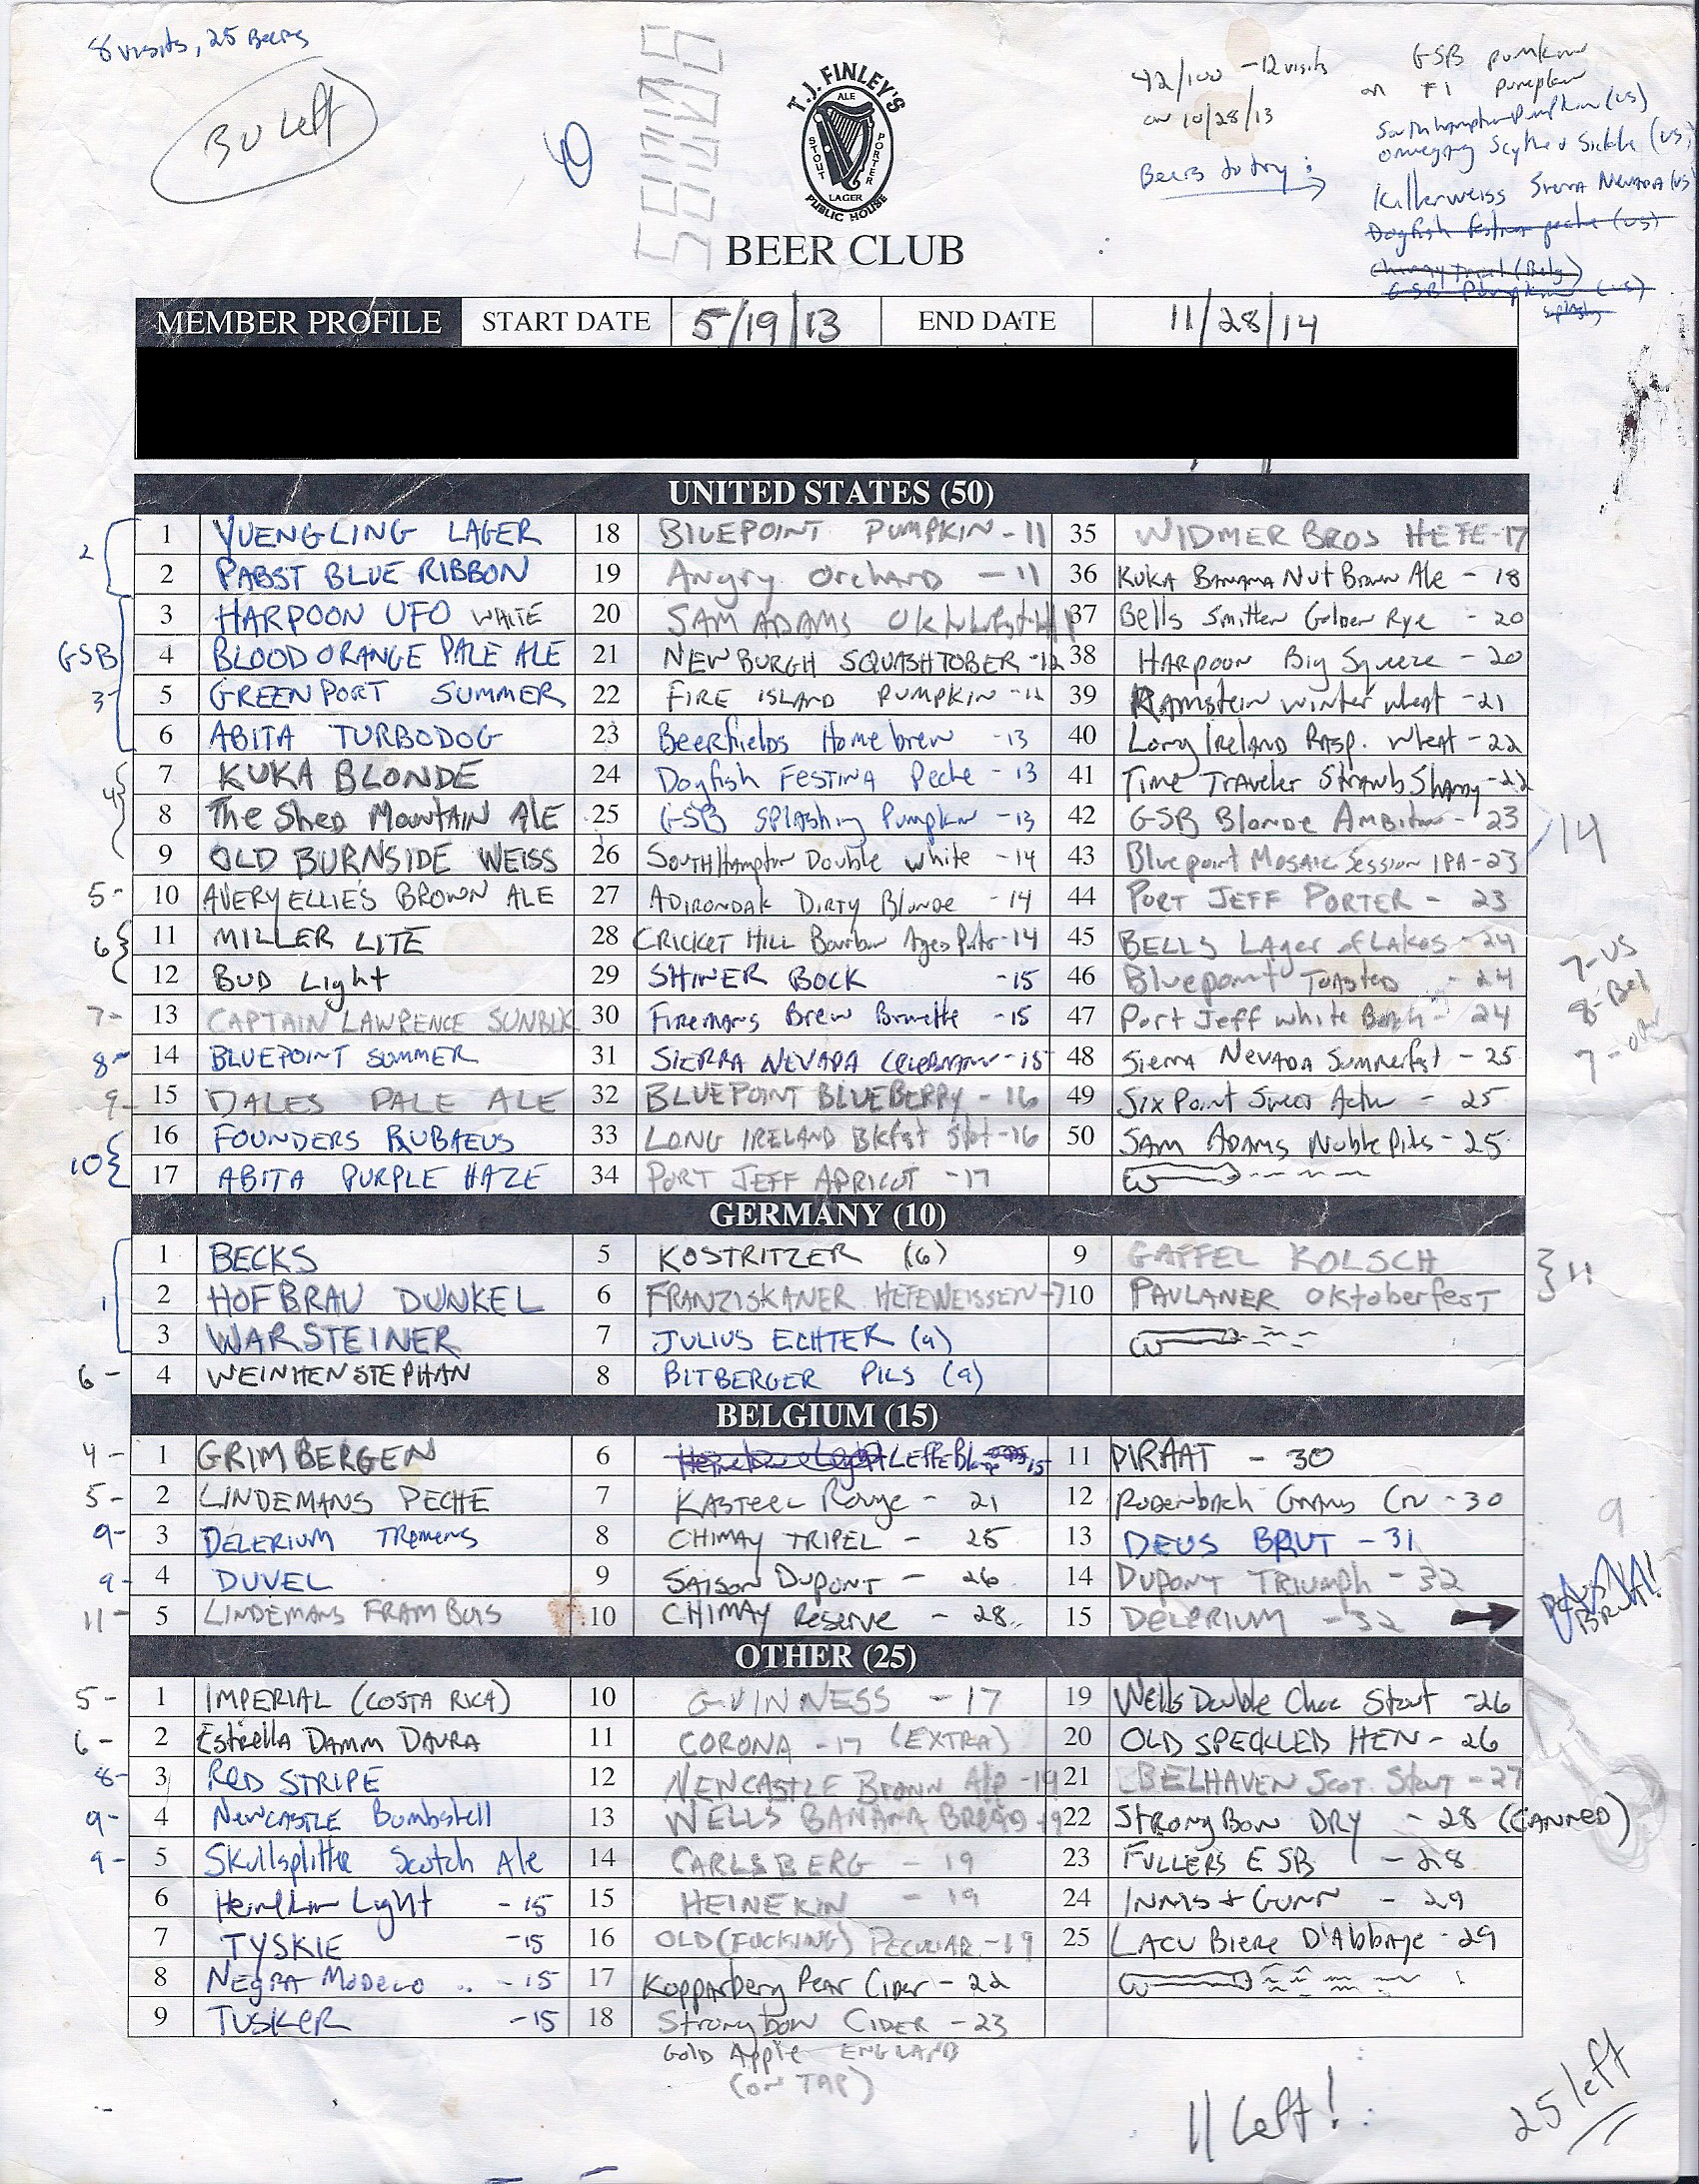 8 visits, 25 Beers
30 left
T.J. FINLEY'S
ALE
STOUT
PORTER
LAGER
PUBLIC HOUSE
BEER CLUB
42/100 - 12 visits
on 10/28/13
Beers to try:
GSB pumkin
on FI pumpkin
Southhampton Pumpkin (US)
Ommegang Scythe & Sickle (US)
Kellerweiss Sierra Nevada (US)
Dogfish Festina peche (US)
Chimay Tripel (Belg)
GSB Pumpkin (US)
splashy
MEMBER PROFILE START DATE 5/19/13 END DATE 11/28/14
UNITED STATES (50)
2
GSB
3-
4
5-
6
7-
8-
9-
10
1 YUENGLING LAGER
2 PABST BLUE RIBBON
3 HARPOON UFO WHITE
4 BLOOD ORANGE PALE ALE
5 GREENPORT SUMMER
6 ABITA TURBODOG
7 KUKA BLONDE
8 The Shed Mountain ALE
9 OLD BURNSIDE WEISS
10 AVERY ELLIE'S BROWN ALE
11 MILLER LITE
12 BUD Light
13 CAPTAIN LAWRENCE SUNBLK
14 BLUEPOINT SUMMER
15 DALES PALE ALE
16 FOUNDERS RUBAEUS
17 ABITA PURPLE HAZE
18 BLUEPOINT PUMPKIN - 11
19 Angry Orchard - 11
20 SAM ADAMS Oktobfest-11
21 NEWBURGH SQUASHTOBER -12
22 FIRE ISLAND PUMPKIN -12
23 Beerfields Homebrew -13
24 Dogfish FESTINA Peche - 13
25 GSB SPLAShing Pumpkin -13
26 SouthHampton Double White -14
27 ADIRONDAK Dirty Blonde -14
28 CRICKET HILL Bourbon Aged Porter-14
29 SHINER BOCK -15
30 Firemans Brew Brunette -15
31 SIERRA NEVADA Celebration -15
32 BLUEPOINT BLUEBERRY - 16
33 LONG IRELAND Bkfst Stot-16
34 PORT JEFF APRICOT -17
35 WIDMER BROS HEFE-17
36 KUKA Banana Nut Brown Ale - 18
37 Bells Smitten Golden Rye - 20
38 HARPOON Big Squeeze - 20
39 Ramstein winter wheat -21
40 Long IRELAND RASP. Wheat -22
41 Time Traveler Strawb Shandy -22
42 GSB Blonde Ambition - 23
43 Bluepoint Mosaic Session IPA-23
44 PORT JEFF PORTER - 23
45 BELLS Lager of Lakes - 24
46 Bluepoint Toasted - 24
47 Port Jeff White Beach - 24
48 Sierra Nevada Summerfest - 25
49 Six Point Sweet Action - 25
50 SAM ADAMS Noble Pils - 25
14
7-US
8-Bel
7-other
GERMANY (10)
1
6 -
1 BECKS
2 HOFBRAU DUNKEL
3 WARSTEINER
4 WEINHENSTEPHAN
5 KOSTRITZER (6)
6 FRANZISKANER HEFEWEISSEN-7
7 JULIUS ECHTER (9)
8 BITBERGER PILS (9)
9 GAFFEL KOLSCH
10 PAULANER Oktoberfest
11
BELGIUM (15)
4 - 1 GRIMBERGEN
5 - 2 LINDEMANS PECHE
9- 3 DELERIUM TREMENS
9- 4 DUVEL
11 - 5 LINDEMANS FRAMBOIS
6 Heineken Light LEFFE Bl 15
7 KASTEEL Rouge - 21
8 CHIMAY TRIPEL - 25
9 SAISON DUPONT - 26
10 CHIMAY Reserve - 28
11 PIRAAT - 30
12 Rodenbach Grand Cru - 30
13 DEUS BRUT - 31
14 DUPONT TRIUMPH - 32
15 DELERIUM - 32
9
DEUS BRUT!
OTHER (25)
5 - 1 IMPERIAL (COSTA RICA)
6 - 2 Estrella Damm DAURA
8- 3 RED STRIPE
9- 4 Newcastle Bombshell
9- 5 Skullsplitter Scotch Ale
6 Heineken Light - 15
7 TYSKIE -15
8 NEGRA MODELO - 15
9 TUSKER -15
10 GUINNESS - 17
11 CORONA - 17 (EXTRA)
12 NEWCASTLE Brown Ale -19
13 WELLS BANANA BREAD -19
14 CARLSBERG - 19
15 HEINEKIN - 19
16 OLD (FUCKING) PECULIAR - 19
17 Kopparberg Pear Cider - 22
18 Strongbow CIDER - 23
Gold Apple ENGLAND
(ON TAP)
19 Wells Double Choc Stout -26
20 OLD SPECKLED HEN - 26
21 BELHAVEN SCOT. Stout - 27
22 STRONGBOW DRY - 28 (CANNED)
23 FULLERS ESB - 28
24 INNIS + GUNN - 29
25 LACU Biere D'Abbaye - 29
11 left!
25 left